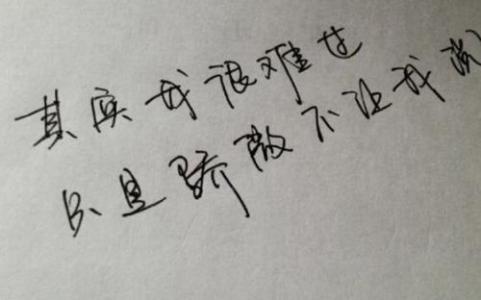 其实我很难过
只是骄傲不让我说